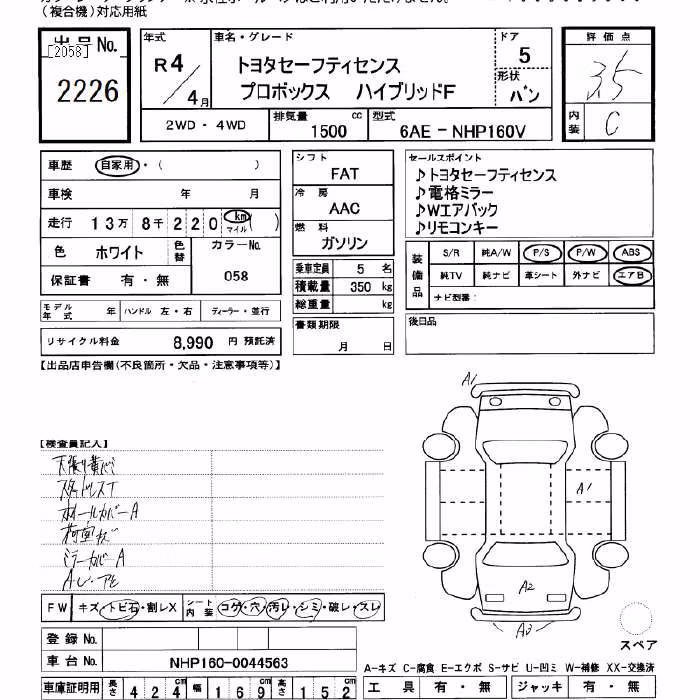 (複合機)対応用紙
出品 No.
[2058]
2226
年式
R4/4月
車名・グレード
トヨタセーフティセンス
プロボックス ハイブリッドF
ドア
5
形状
バン
評価点
3.5
内装
C
2WD・4WD
排気量
1500 cc
型式
6AE-NHP160V
車歴 自家用・( )
車検 年 月
走行 13万 8千 220 km マイル ( )
色 ホワイト 色替
カラーNo.
058
保証書 有・無
モデル年式 年 ハンドル 左・右 ディーラー・並行
リサイクル料金 8,990 円 預託済
シフト
FAT
冷房
AAC
燃料
ガソリン
乗車定員 5 名
積載量 350 kg
総重量 kg
書類期限
月 日
セールスポイント
♪トヨタセーフティセンス
♪電格ミラー
♪Wエアバック
♪リモコンキー
装備品
S/R 純A/W P/S P/W ABS
純TV 純ナビ 革シート 外ナビ エアB
ナビ型番:
後日品
【出品店申告欄(不良箇所・欠品・注意事項等)】
【検査員記入】
スタッドレスT
ホイールカバーA
ミラーカバーA
A1
A1
A2
A3
FW キズ・トビ石・割レX シート内装 コゲ・穴・汚レ・シミ・破レ・スレ
登録 No.
車台 No. NHP160-0044563
車庫証明用 長さ 424 cm 幅 169 cm 高さ 152 cm
スペア
A-キズ C-腐食 E-エクボ S-サビ U-凹ミ W-補修 XX-交換済
工具 有・無 ジャッキ 有・無